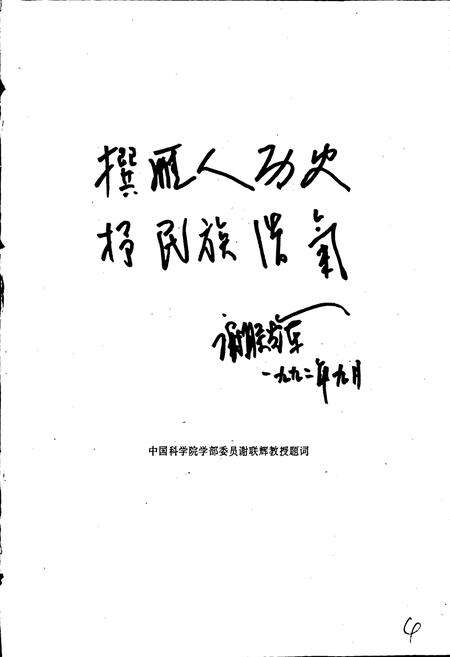 撰雁人功史
抒民族浩气
谢联辉
一九九二年九月
中国科学院学部委员谢联辉教授题词
4